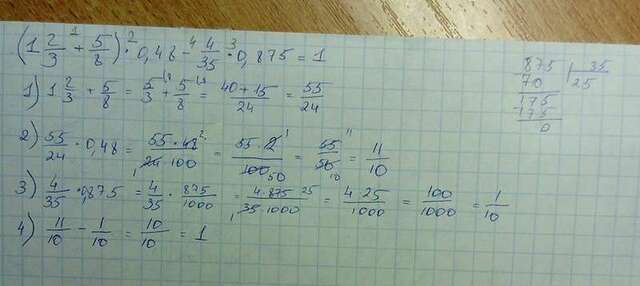 (1 2/3 + 5/8) · 0,48 - 4/35 · 0,875 = 1
1) 1 2/3 + 5/8 = 5/3 + 5/8 = (40+15)/24 = 55/24
2) 55/24 · 0,48 = (55·48)/(24·100) = (55·2)/100 = 55/50 = 11/10
3) 4/35 · 0,875 = 4/35 · 875/1000 = (4·875)/(35·1000) = (4·25)/1000 = 100/1000 = 1/10
4) 11/10 - 1/10 = 10/10 = 1
875 | 35
70 25
175
175
0